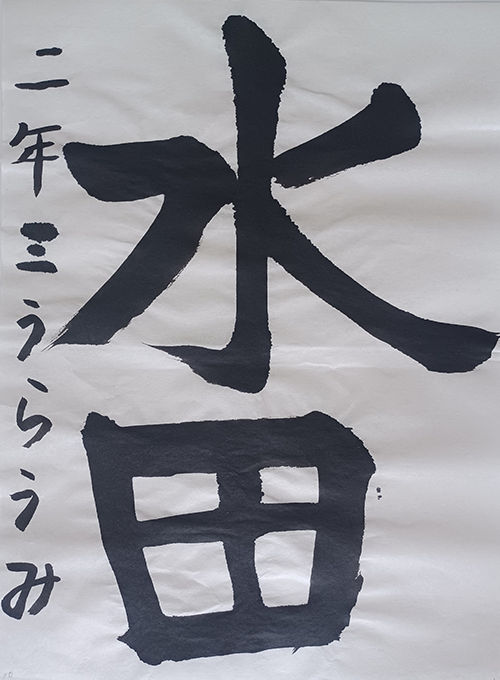 水田
二年三うらうみ